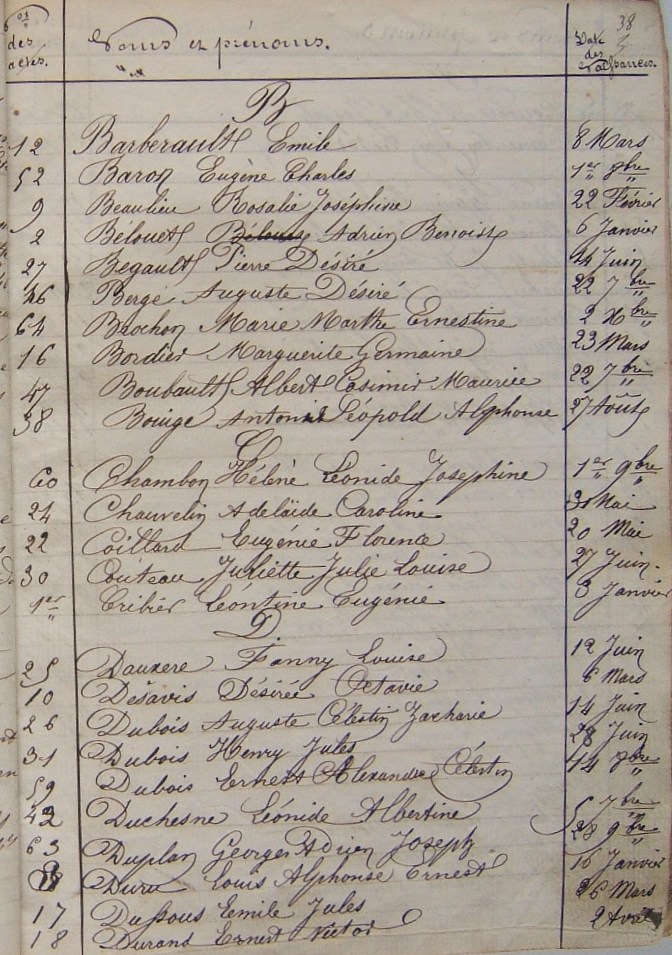 38
Nos des actes. Noms et prénoms. Date des Naissances.
B
12 Barberault Emile 8 Mars
52 Baron Eugène Charles 1er 8bre
9 Beaulieu Rosalie Joséphine 22 Février
2 Belouet Adrien Benoist 6 Janvier
27 Begault Pierre Désiré Juin
46 Bergé Auguste Désiré 22 7bre
64 Brochon Marie Marthe Ernestine 2 Xbre
16 Bordier Marguerite Germaine 23 Mars
47 Boubault Albert Casimir Maurice 22 7bre
38 Bouge Léopold Alphonse 27 Août
C
60 Chambon Hélène Léonide Josephine 1er 9bre
24 Chauvelin Adelaïde Caroline Mai
22 Coillard Eugénie Florence 20 Mai
30 Couteau Juliette Julie Louise 27 Juin.
1er Cribier Léontine Eugénie 3 Janvier
D
25 Dauxere Fanny Louise 12 Juin
10 Desavis Désirée Octavie 6 Mars
26 Dubois Auguste Célestin Zacharie 14 Juin
31 Dubois Henry Jules 28 Juin
59 Dubois Ernest Alexandre Célestin
42 Duchesne Léonide Albertine 5 7bre
63 Duplan Georges Adrien Joseph 28 9bre
Duru Louis Alphonse Ernest 16 Janvier
17 Dussous Emile Jules 26 Mars
18 Durand Ernest Victor 2 Avril